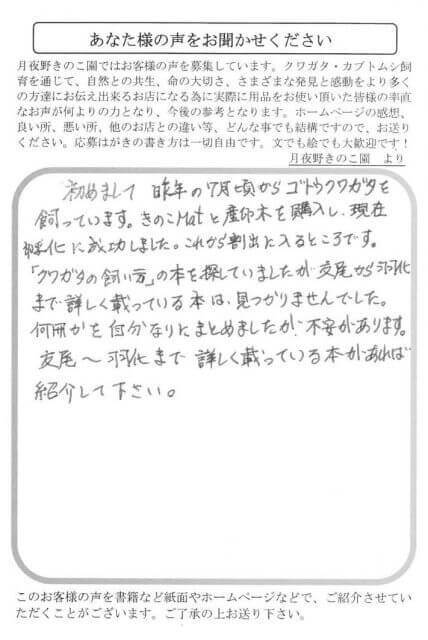 あなた様の声をお聞かせください
月夜野きのこ園ではお客様の声を募集しています。クワガタ・カブトムシ飼
育を通じて、自然との共生、命の大切さ、さまざまな発見と感動をより多く
の方達にお伝え出来るお店になる為に実際に用品をお使い頂いた皆様の率直
なお声が何よりの力となり、今後の参考となります。ホームページの感想、
良い所、悪い所、他のお店との違い等、どんな事でも結構ですので、お送り
ください。応募はがきの書き方は一切自由です。文でも絵でも大歓迎です！
月夜野きのこ園　より
初めまして 昨年の7月頃からゴトウクワガタを
飼っています。きのこMatと産卵木を購入し、現在
孵化に成功しました。これから割出に入るところです。
「クワガタの飼い方」の本を探していましたが交尾から羽化
まで詳しく載っている本は、見つかりませんでした。
何冊かを自分なりにまとめましたが、不安があります。
交尾～羽化まで 詳しく載っている本があれば
紹介して下さい。
このお客様の声を書籍など紙面やホームページなどで、ご紹介させてい
ただくことがございます。ご了承の上お送り下さい。